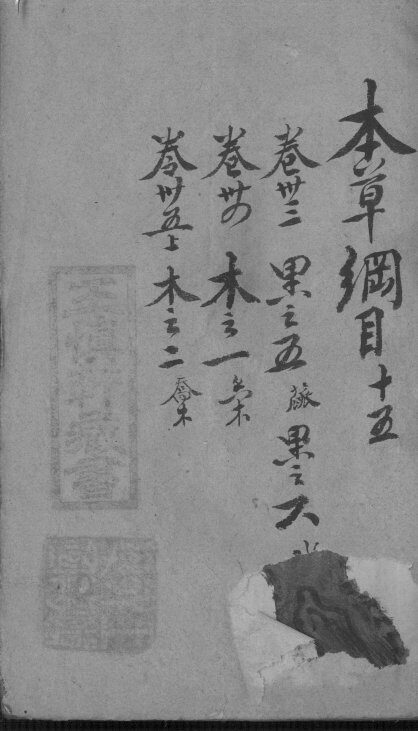 本草綱目十五
卷卅三 果之五 蓏 果之六 水
卷卅四 木之一 香木
卷卅五上 木之二 喬木